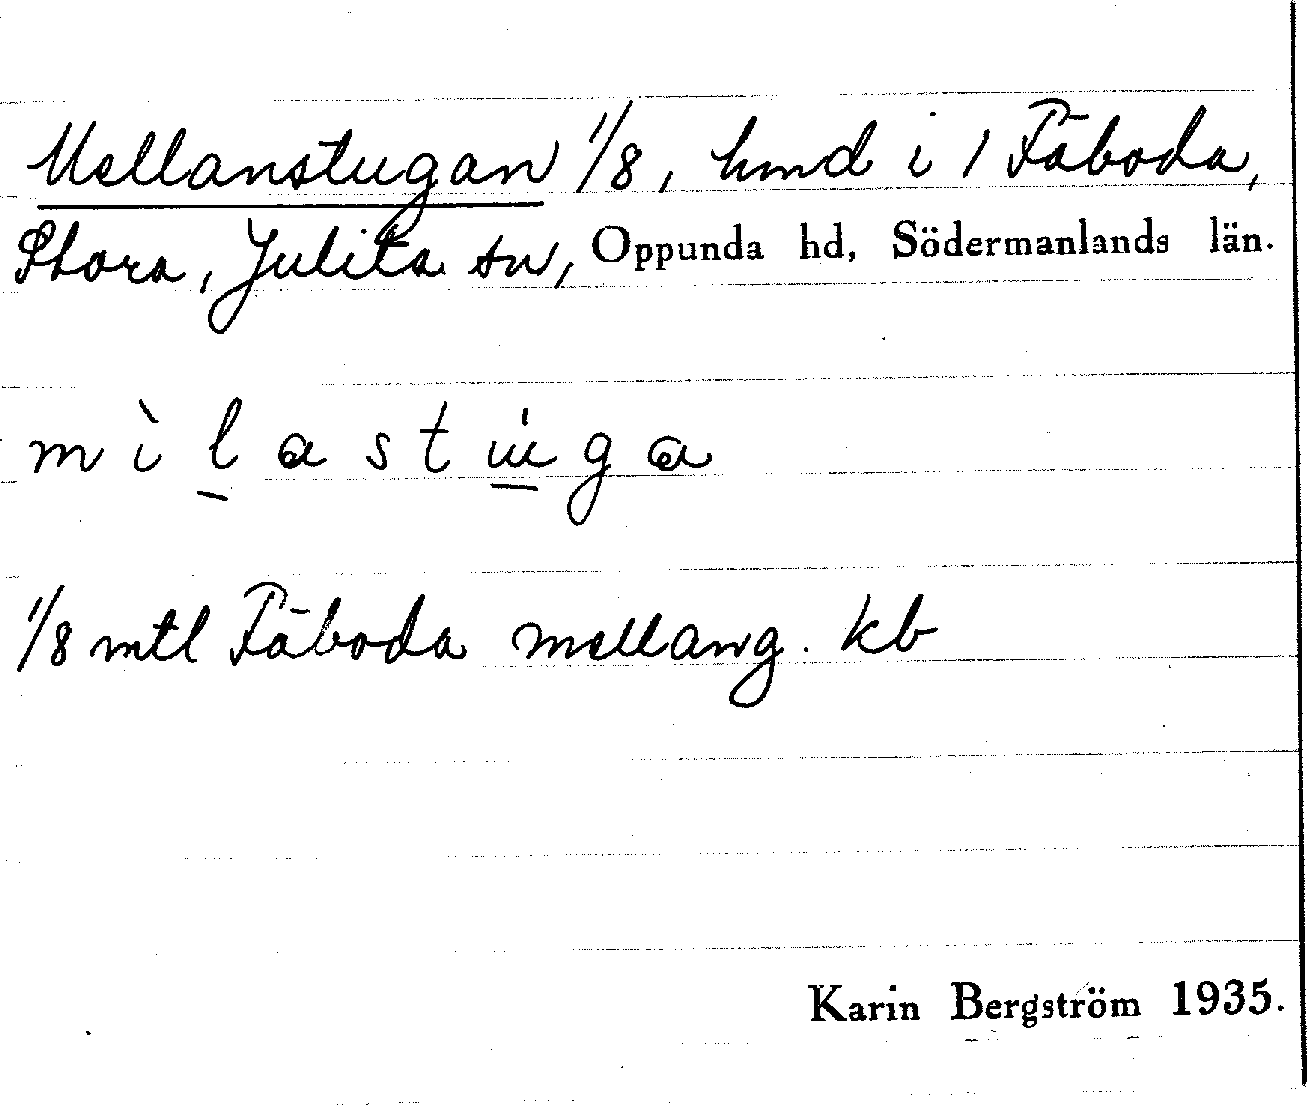 Mellanstugan 1/8, hmd i 1 Fäboda,
Stora, Julita sn, Oppunda hd, Södermanlands län.
m ì l̠ a s t u̠̇ g a
1/8 mtl Fäboda mellang. kb
Karin Bergström 1935.